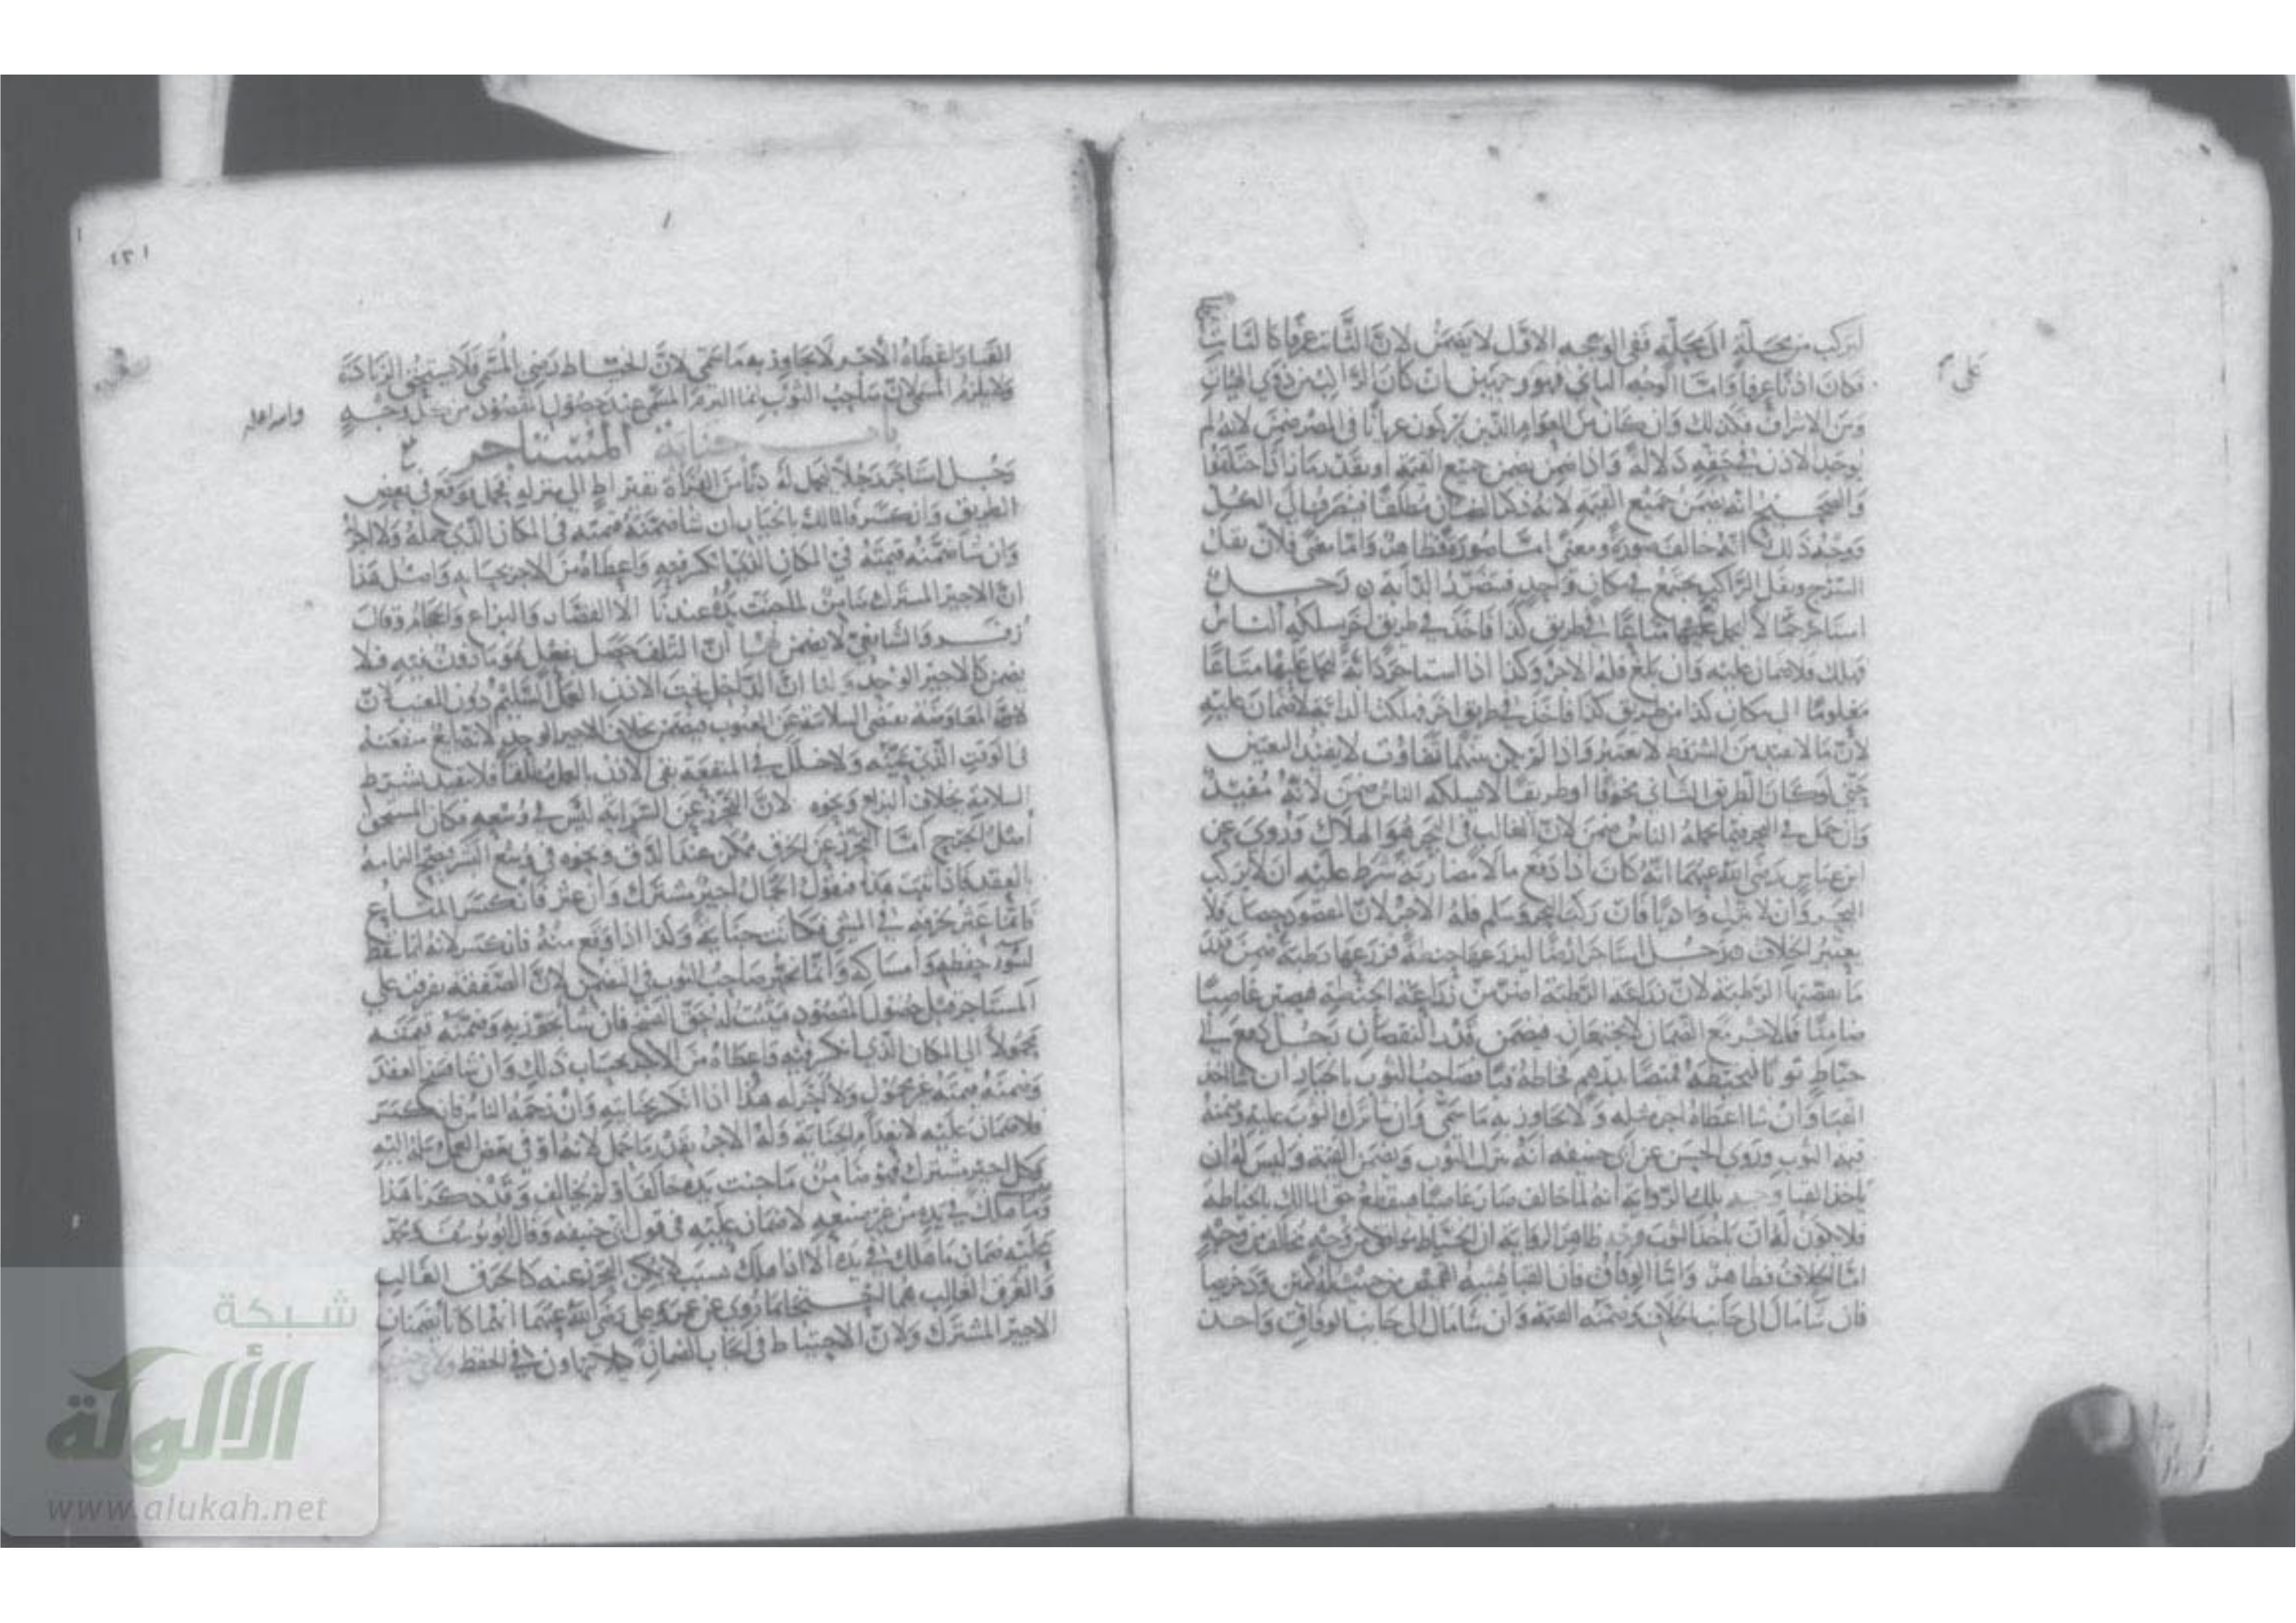 ليركب من محلة الى محلة ففي الوجه الاول لا يضمن لان الثابت عرفا كالثابت
فكان اذنا عرفا واما الوجه الثاني فهو وجهين ان كان الراكب ليس من ذوي الهيات
ومن الاشراف فكذلك وان كان من العوام الذين يركبون عريانا في المصر ضمن لانه لم
يوجد الاذن في حقه دلالة واذا ضمن يضمن جميع القيمة او بقدر ما زاد اختلفوا
والصحيح انه يضمن جميع القيمة لانه ذكر الضمان مطلقا فينصرف الى الكل
ووجه ذلك انه خالف صورة ومعنى اما صورة فظاهر واما معنى فلان ثقل
السرج وثقل الراكب يجتمع في مكان واحد فيتضرر الدابة به رجل
استاجر حمالا ليحمل عليها متاعا في طريق كذا فاخذ في طريق اخر يسلكه الناس
فهلك فلا ضمان عليه وان بلغ فله الاجر وكذا اذا استاجر دابة ليحمل عليها متاعا
معلوما الى مكان كذا من طريق كذا فاخذ في طريق اخر فهلكت الدابة فلا ضمان عليه
لان ما لا يفيد من الشروط لا يعتبر واذا لم يكن بينهما تفاوت لا يفيد التعيين
حتى لو كان الطريق الثاني مخوفا او طريقا لا يسلكه الناس ضمن لانه مفيد
وان حمل في البحر فيما يحمله الناس ضمن لان الغالب في البحر هو الهلاك وروي عن
ابن عباس رضي الله عنهما انه كان اذا دفع مالا مضاربة شرط عليه ان لا يركب
البحر وان لا ينزل واديا فان ركب البحر وسلم فله الاجر لان المقصود حصل فلا
يعتبر الخلاف رجل استاجر ارضا ليزرعها حنطة فزرعها رطبة ضمن قدر
ما نقصتها الرطبة لان زراعة الرطبة اضر من زراعة الحنطة فيصير غاصبا
ضامنا فلا اجر مع الضمان لا يجتمعان فيضمن قدر النقصان رجل دفع الى
خياط ثوبا ليخيطه قميصا بدرهم فخاطه قبا فصاحب الثوب بالخيار ان شا اخذ
القبا وان شا اعطاه اجر مثله ولا يجاوز به ما سمى وان شا ترك الثوب عليه وضمنه
قيمة الثوب وروى الحسن عن ابي حنيفة انه يترك الثوب ويضمن القيمة وليس له ان
ياخذ القبا وجه تلك الرواية انه لما خالف صار غاصبا فينقطع حق المالك بالخياطة
فلا يكون له ان ياخذ الثوب وجه ظاهر الرواية ان الخياط موافق من وجه مخالف من وجه
اما الخلاف فظاهر واما الوفاق فان القبا يشبه القميص من حيث له كمين ودخريصا
فان شا مال الى جانب الخلاف وضمنه القيمة وان شا مال الى جانب الوفاق واخذ
على
القبا واعطاه الاجر لا يجاوز به ما سمى لان الخياط رضي بالمسمى فلا يستحق الزيادة
ولا يلزم المسمى لان صاحب الثوب انما التزم المسمى عند حصول المقصود من كل وجه
والله اعلم
باب جناية المستاجر
رجل استاجر رجلا ليحمل له دنا من الفرات بقيراط الى منزله فحمل فوقع في بعض
الطريق وانكسر فالمالك بالخيار ان شا ضمنه قيمته في المكان الذي حمله ولا اجر
وان شا ضمنه قيمته في المكان الذي انكسر فيه واعطاه من الاجر بحسابه واصل هذا
ان الاجير المشترك ضامن لما جنت يده عندنا الا الفصاد والبزاغ والحجام وقال
زفر والشافعي لا يضمن لهما ان التلف حصل بفعل هو ماذون فيه فلا
يضمن كالاجير الوحد ولنا ان الداخل تحت الاذن العمل السليم دون المعيب لان
في الوقت الذي عينه ولا خلل في المنفعة بقي الاذن بالعمل مطلقا فلا يتقيد بشرط
السلامة بخلاف البزاغ ونحوه لان التحرز عن السراية ليس في وسعه فكان المستحق
العقد فاذا ثبت هذا فنقول الحمال اجير مشترك وان عثر فانكسر المتاع
فانما عثر بخرقه في المشي فكانت جناية وكذا اذا وقع منه فانكسر لانه انما سقط
لسوء حفظه وامساكه وانما يخير صاحب الثوب في التضمين لان الصفقة تفرقت على
المستاجر قبل حصول المقصود فيثبت له حق الفسخ فان شا جوز به وضمنه قيمته
محمولا الى المكان الذي انكسر فيه واعطاه من الاجر بحساب ذلك وان شا فسخ العقد
وضمنه قيمته غير محمول ولا اجر له هذا اذا انكسر بجنايته وان زحمه الناس فانكسر
فلا ضمان عليه لانعدام الجناية وله الاجر بقدر ما حمل لانه اوفى بعض العمل
وكل اجير مشترك فهو ضامن ما جنت يده خالف او لم يخالف وقد ذكرنا هذا
وما هلك في يده من غير صنعه لا ضمان عليه في قول ابي حنيفة وقال ابو يوسف ومحمد
عليه ضمان ما هلك في يده الا اذا هلك بسبب لا يمكن التحرز عنه كالحرق الغالب
والغرق الغالب لهما ما روي عن عمر وعلي رضي الله عنهما انهما كانا يضمنان
الاجير المشترك ولان الاحتياط في ايجاب الضمان كيلا يتهاون في الحفظ ولابي حنيفة
شبكة
الألوكة
www.alukah.net